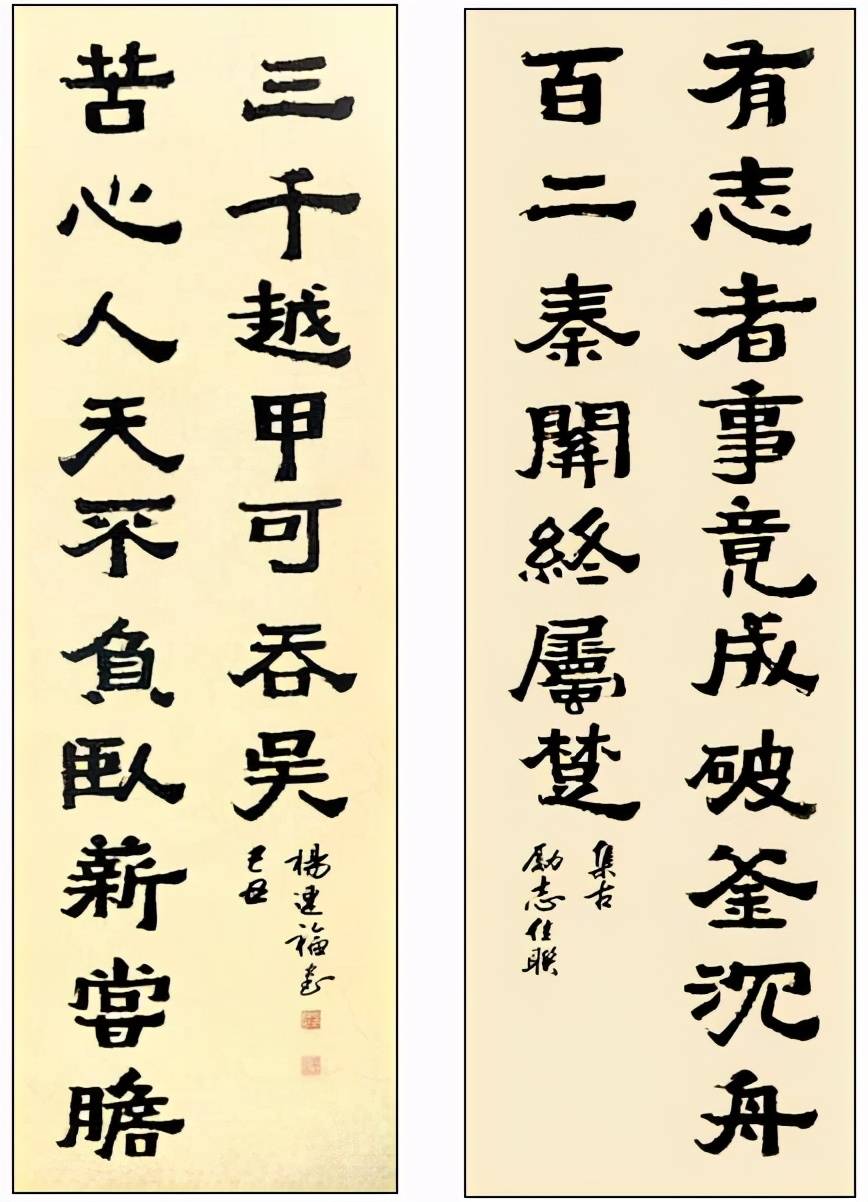 有志者事竟成破釜沉舟
百二秦關終屬楚
集古
勵志佳聯
苦心人天不負臥薪嘗膽
三千越甲可吞吳
己丑
楊建福書